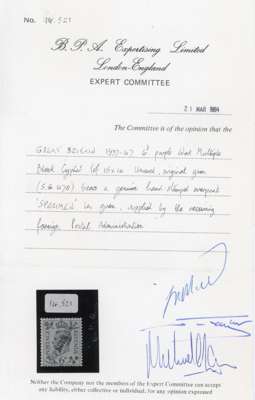 No. 14,521
B. P. A. Expertising Limited
London-England
EXPERT COMMITTEE
21 MAR 1984
The Committee is of the opinion that the
GREAT BRITAIN 1937-47 purple Wmk Multiple
Block Cypher Unused original gum
(S.G. bears a genuine hand stamped overprint
'SPECIMEN' in green, applied by the receiving
foreign Postal Administration
14,521
Neither the Company nor the members of the Expert Committee can accept
any liability, either collective or individual, for any opinion expressed